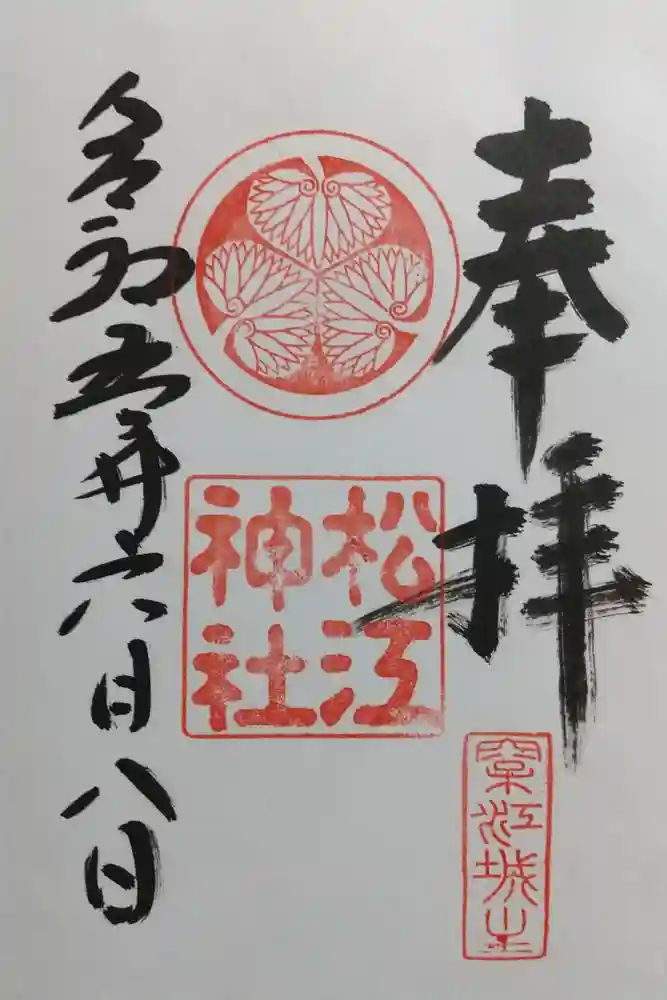 奉拝
江城
松江
神社
令和五年六月八日